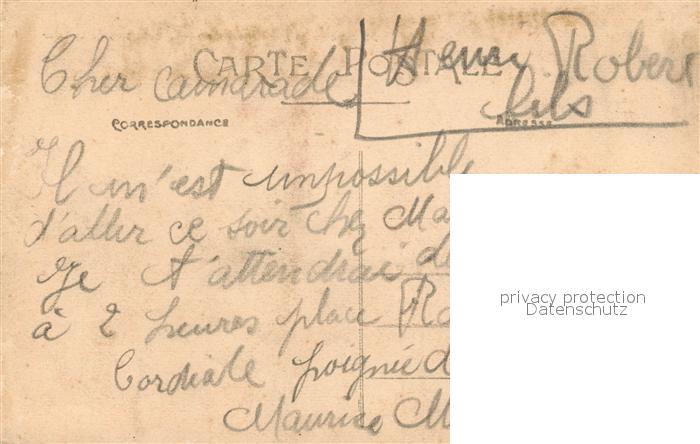 CARTE POSTALE
Henri Robert
fils
Cher camarade
CORRESPONDANCE
ADRESSE
Il m'est impossible
d'aller ce soir chez Ma
Je t'attendrai de
à 2 heures place Ro
Cordiale poignée d
Maurice M
privacy protection
Datenschutz